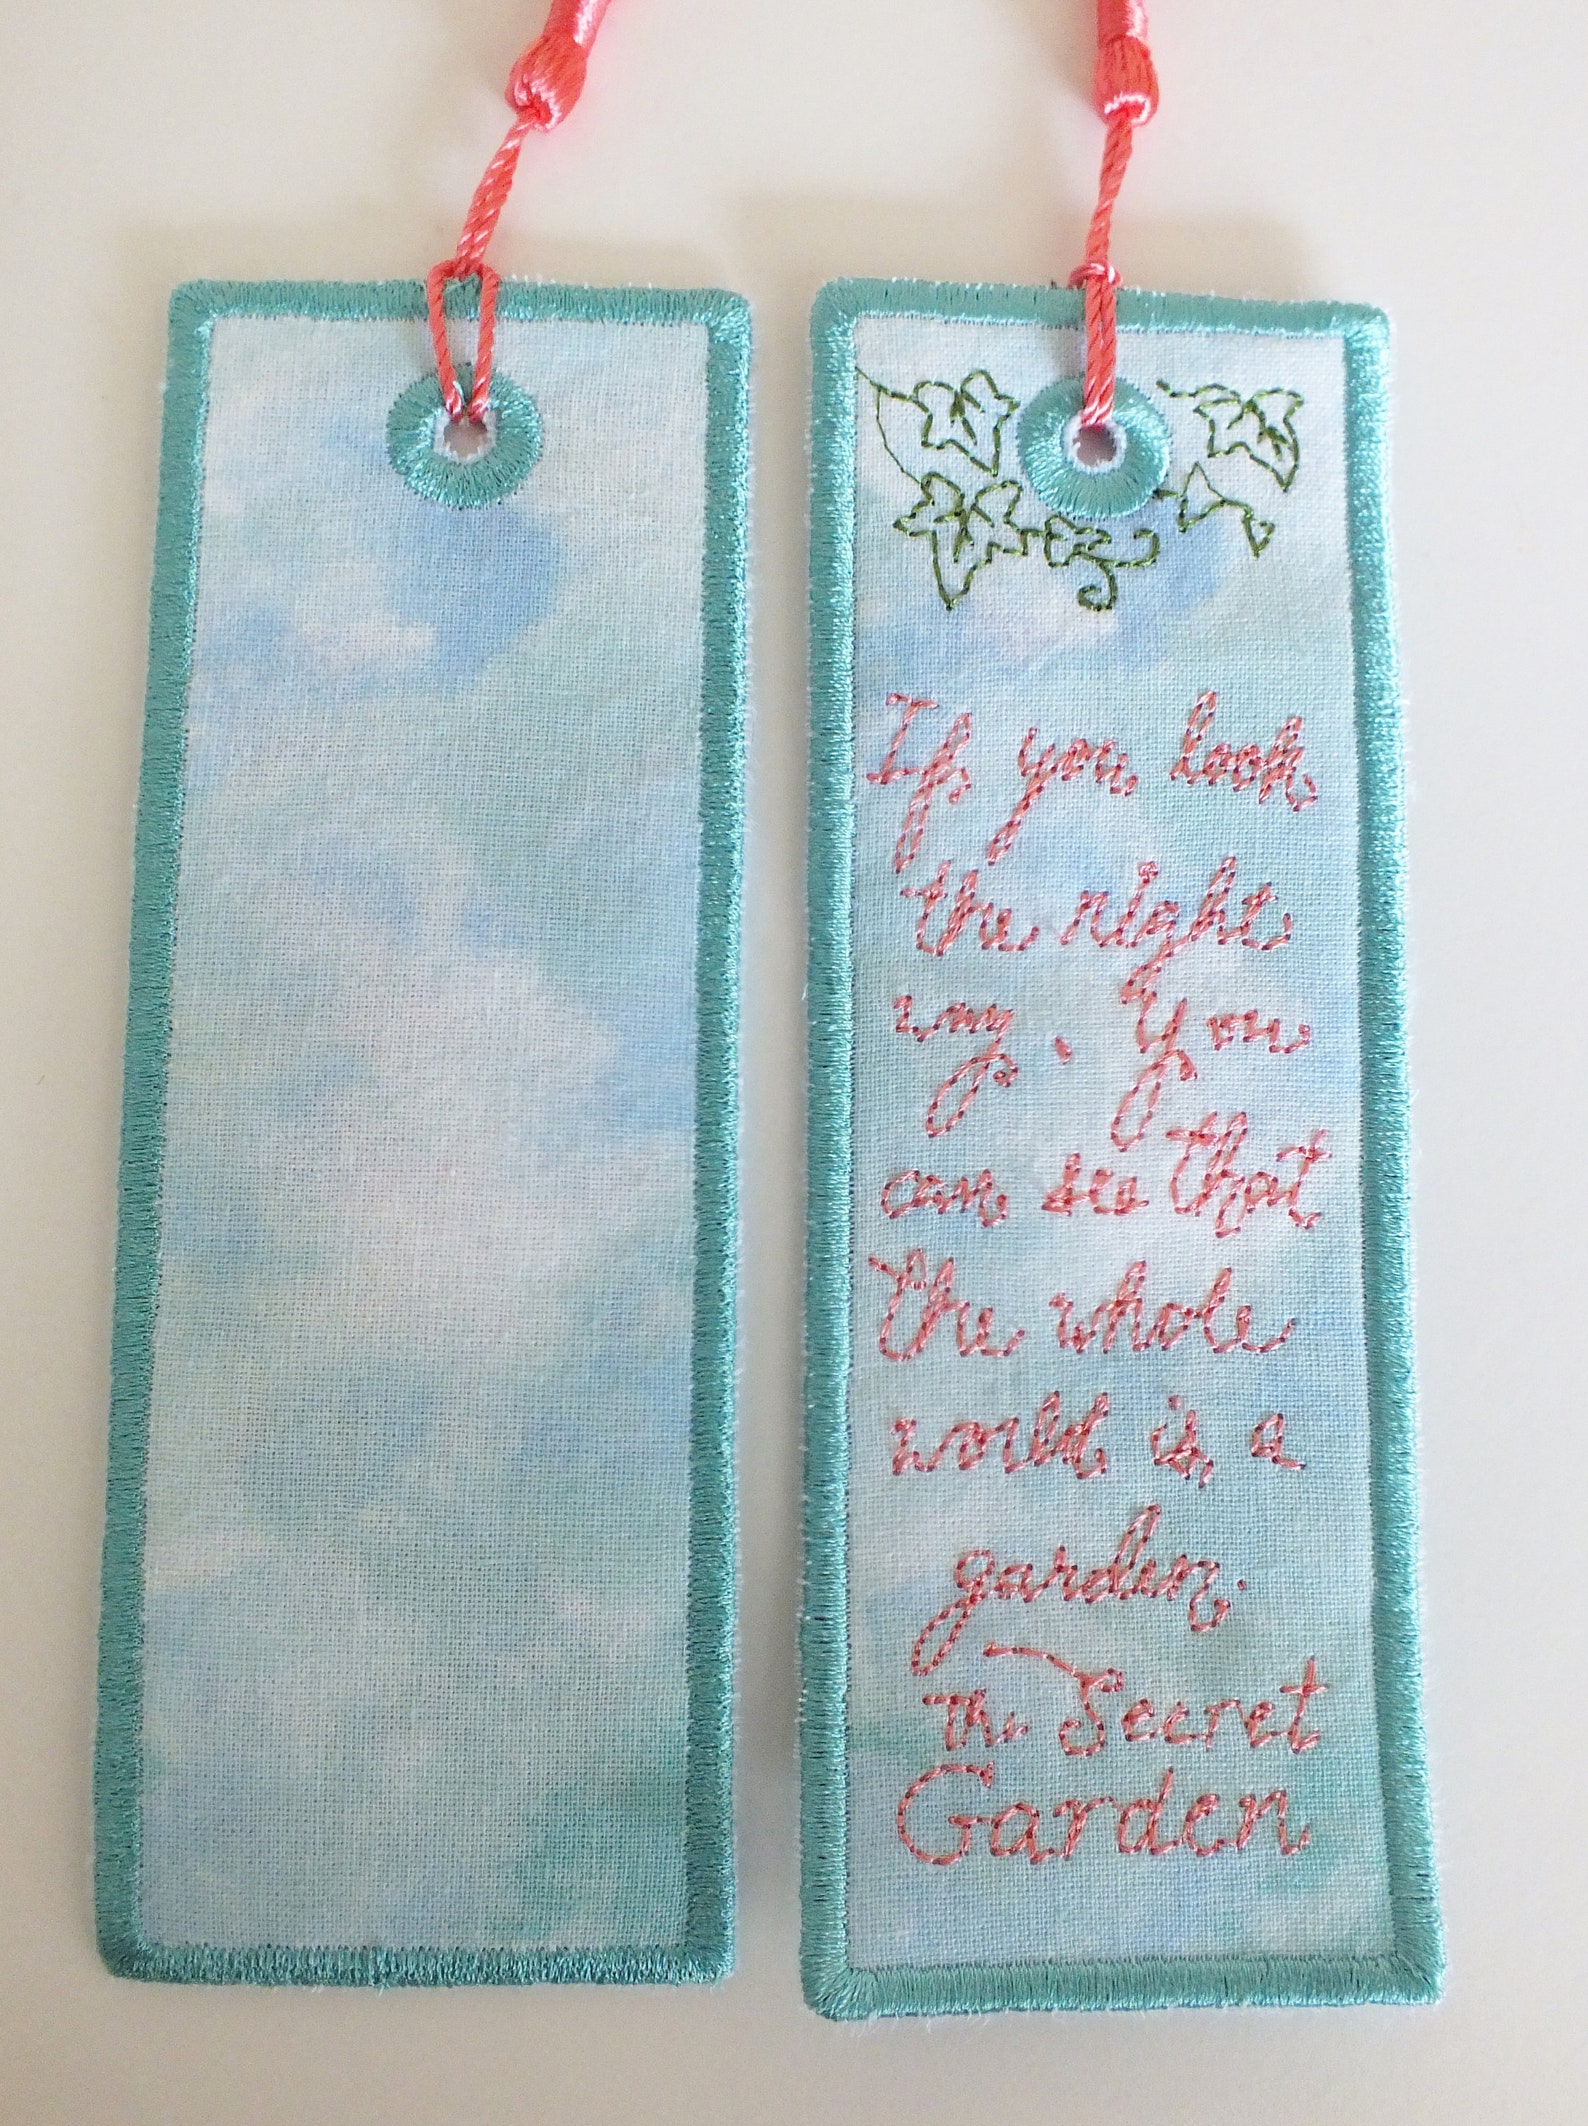 If you look
the right
way. You
can see that
the whole
world is a
garden.
The Secret
Garden